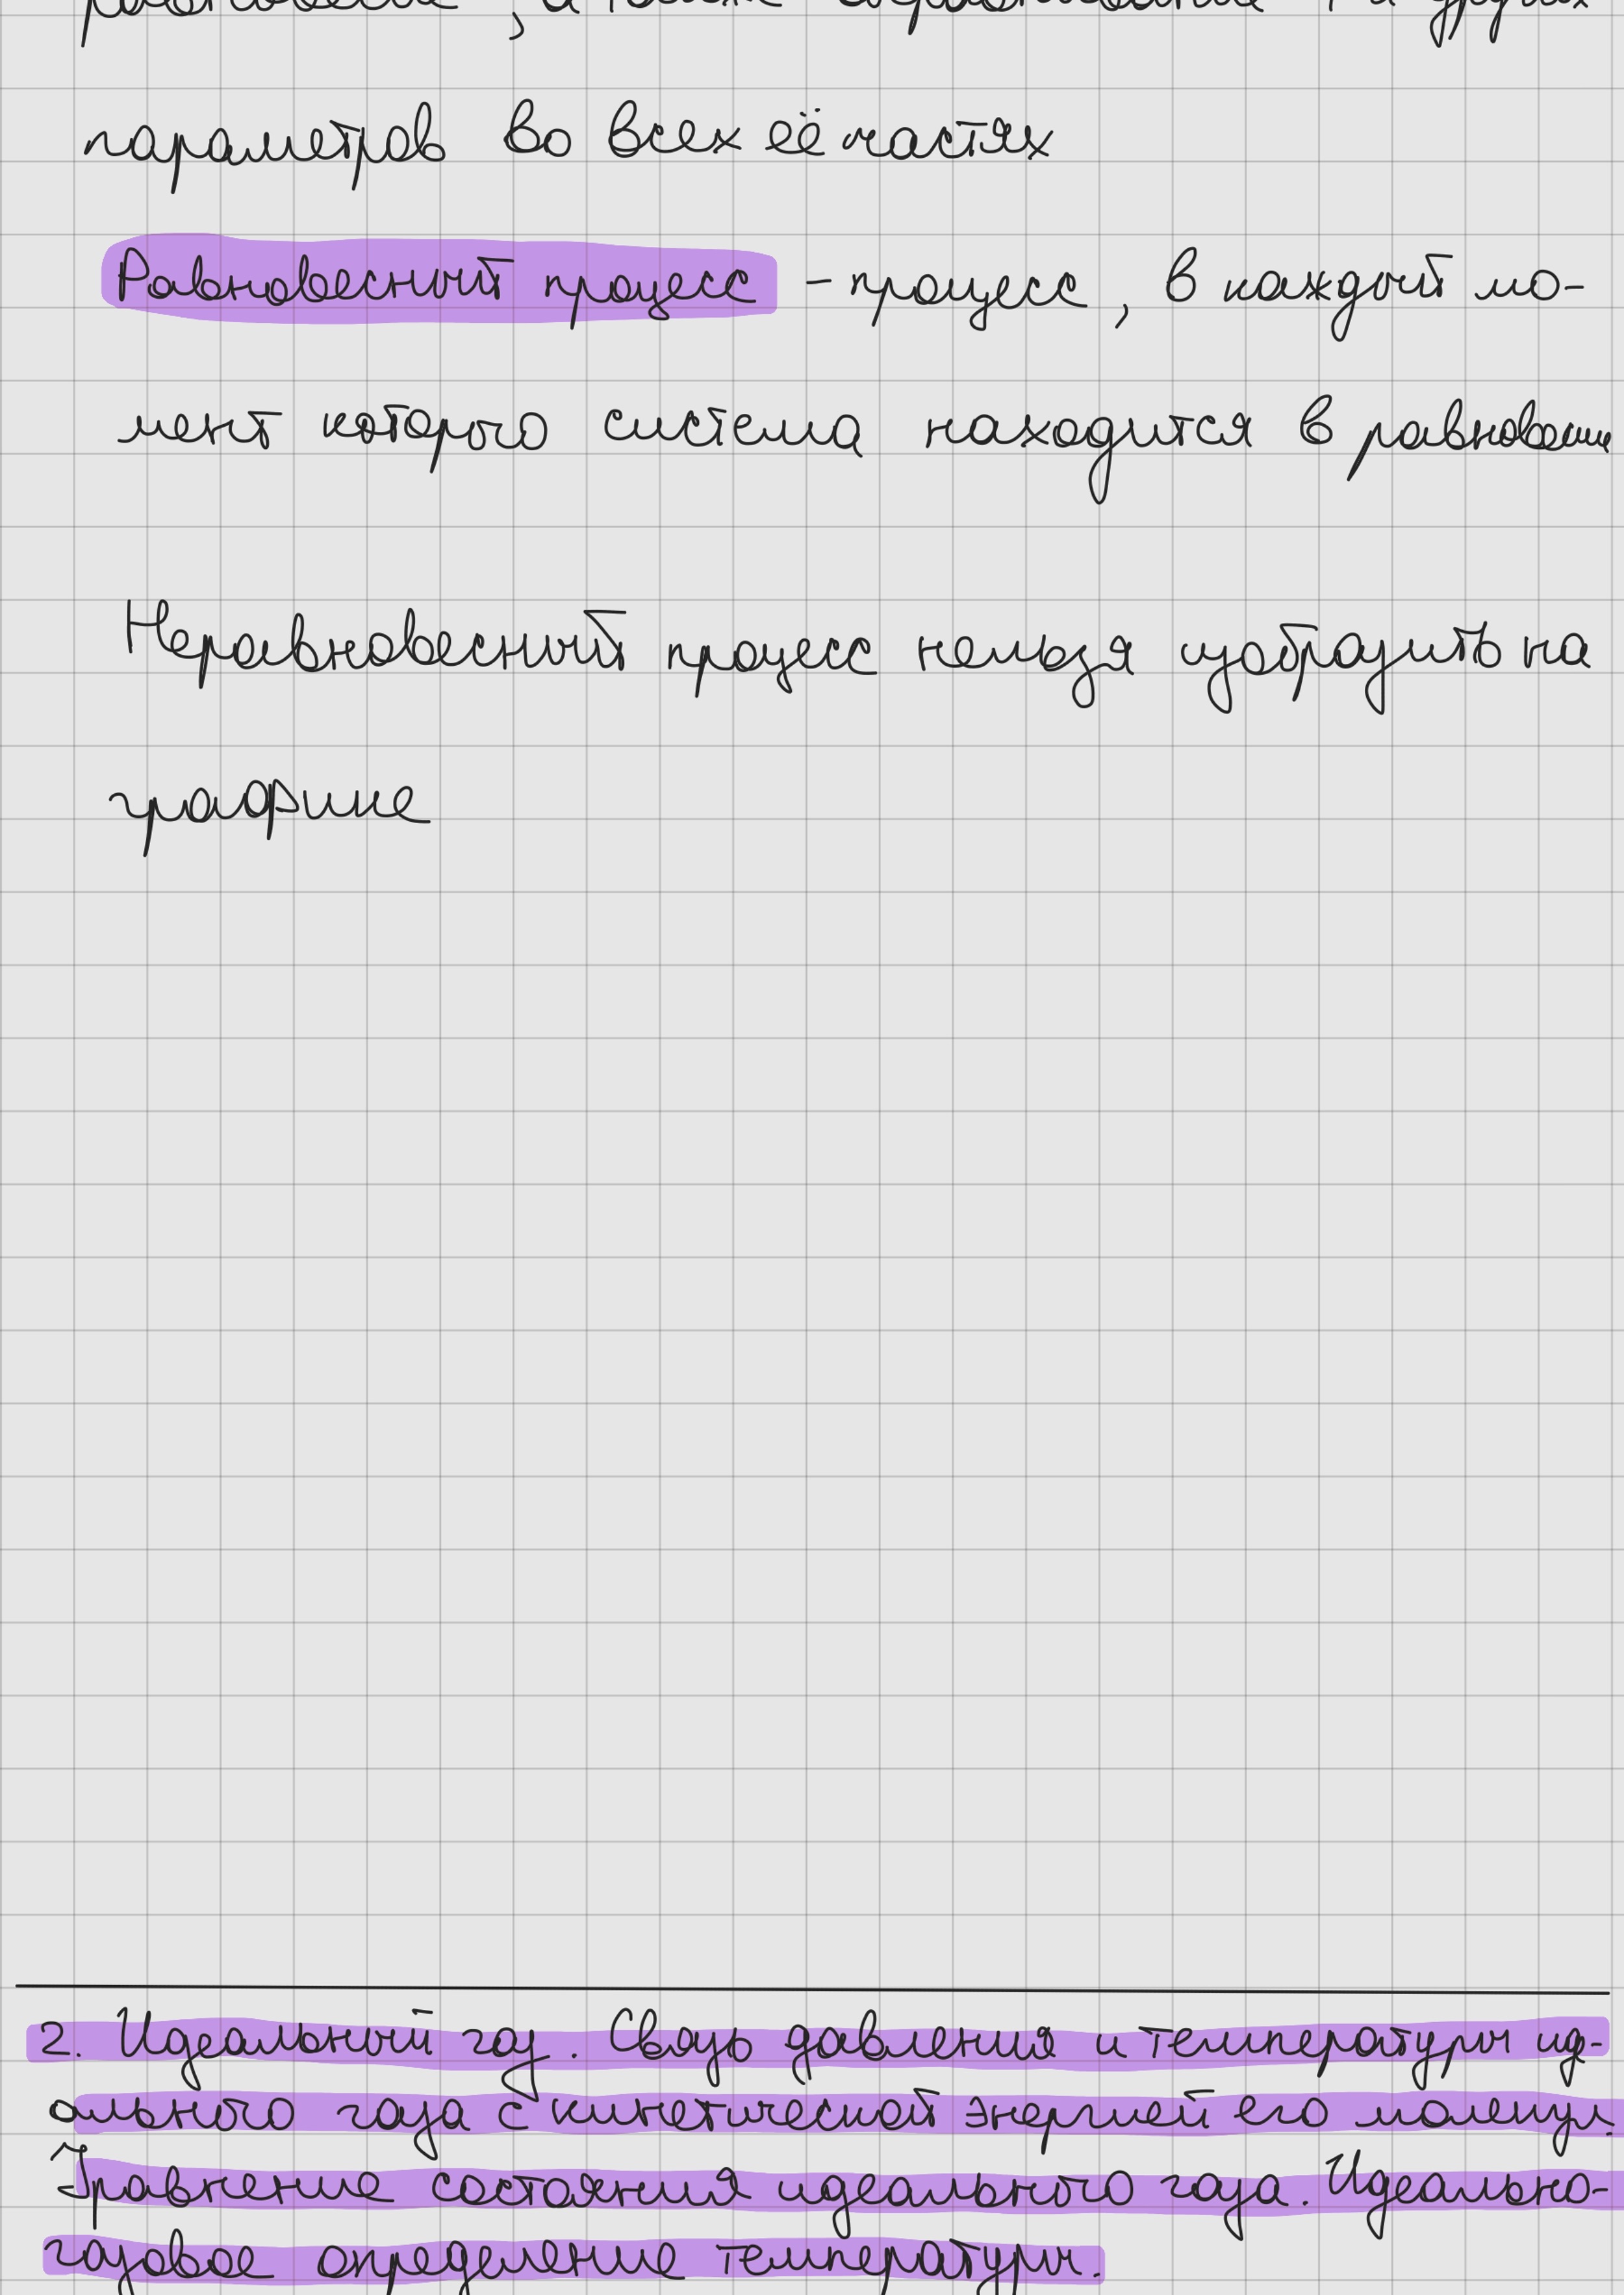 параметров во всех её частях
Равновесный процесс - процесс, в каждый мо-
мент которого система находится в равновесии
Неравновесный процесс нельзя изобразить на
графике
2. Идеальный газ. Связь давления и температуры иде-
ального газа с кинетической энергией его молекул.
Уравнение состояния идеального газа. Идеально-
газовое определение температуры.